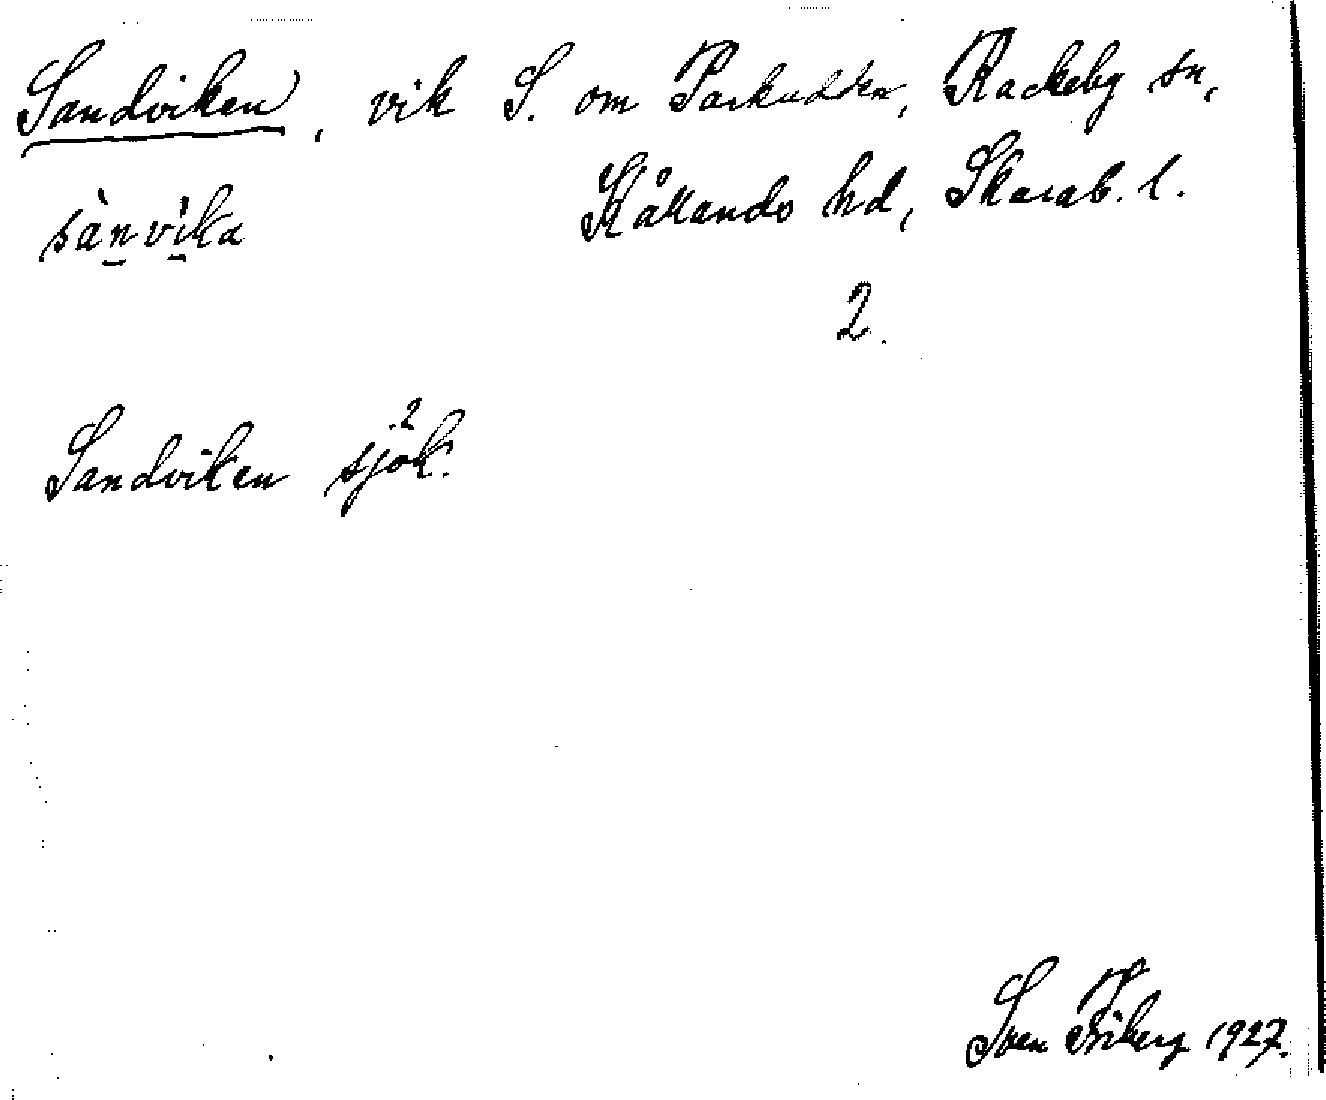 Sandviken, vik S. om Parkudden, Rackeby sn,
Kållands hd, Skarab. l.
sànvika
2.
Sandviken sjök.²
Sven Friberg 1927.